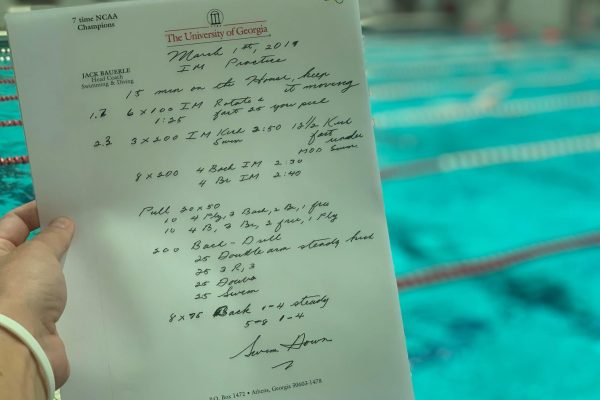 7 time NCAA
Champions
The University of Georgia
JACK BAUERLE
Head Coach
Swimming & Diving
March 1st, 2019
IM Practice
15 min on the House, keep
it moving
6 x 100 IM Rotate a
1:25 fast 25 you pick
3 x 200 IM Kick 2:50 12 1/2 Kick
Swim fast
under
MOD Swim
8 x 200 4 Back IM 2:30
4 Br IM 2:40
Pull 20 x 50
10 4 Fly, 3 Back, 2 Br, 1 free
10 4 B, 3 Br, 2 free, 1 Fly
200 Back - Drill
25 Double arm steady kick
25 3 R, 3
25 Double
25 Swim
8 x 75 Back 1-4 steady
5-8 1-4
Swim Down
P.O. Box 1472 • Athens, Georgia 30603-1478